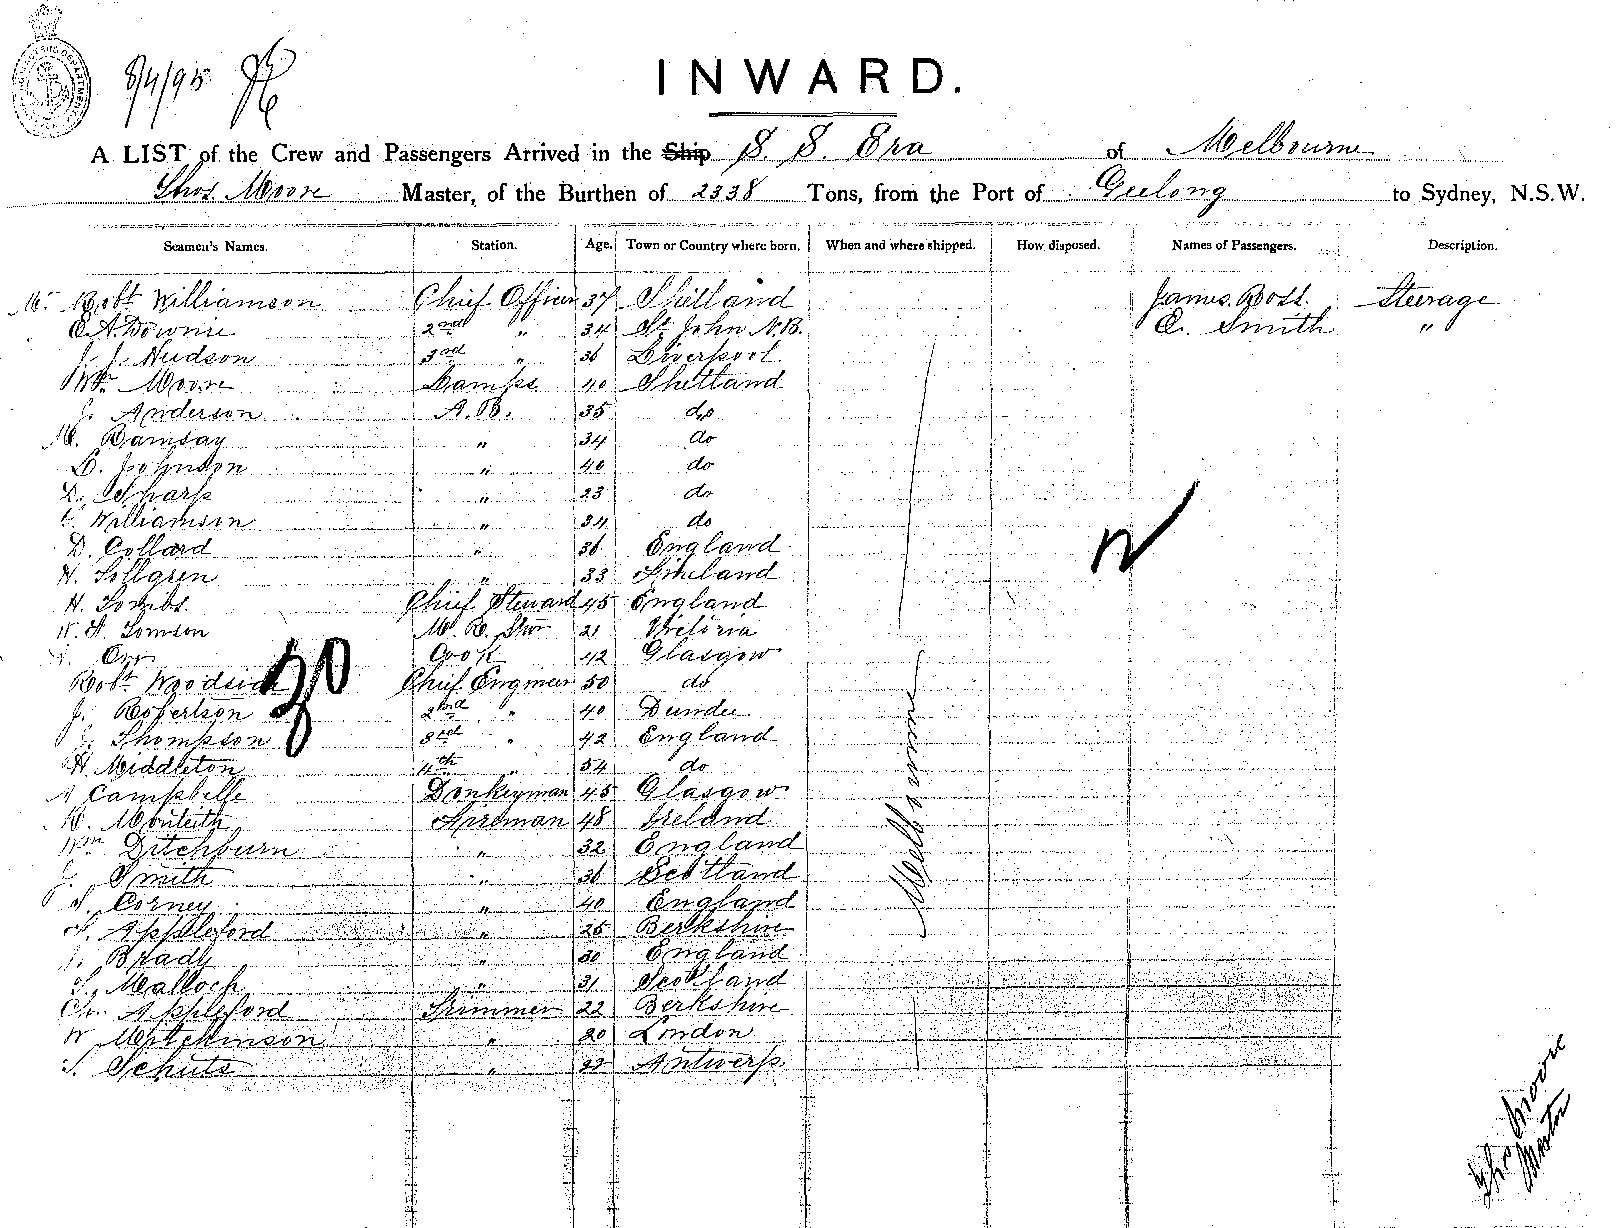 8/4/95
INWARD.
A LIST of the Crew and Passengers Arrived in the Ship S. S. Era of Melbourne
Thos. Moore Master, of the Burthen of 2338 Tons, from the Port of Geelong to Sydney, N.S.W.
Seamen's Names. Station. Age. Town or Country where born. When and where shipped. How disposed. Names of Passengers. Description.
Robt Williamson Chief Officer 37 Shetland James Ross. Steerage
E. A. Downie 2nd " 34 St John N.B. E. Smith "
J. J. Hudson 3rd " 36 Liverpool
Wm Moore Lamps 40 Shetland
J. Anderson A.B. 35 do
M. Ramsay " 34 do
L. Johnson " 40 do
L. Sharp " 23 do
Williamson " 34 do
D. Collard " 36 England
H. Sollgren " 33 Finland
H. Tombs. Chief Steward 45 England
W. H. Tomson M. R. Stwd 21 Victoria
Orr Cook 42 Glasgow
Robt Woodside Chief Engineer 50 do
30
J. Robertson 2nd " 40 Dundee
J. Thompson 3rd " 42 England
H. Middleton 4th " 54 do
A Campbelle Donkeyman 45 Glasgow
R. Monteith Fireman 48 Ireland
Wm Ditchburn " 32 England
J. Smith " 36 Scotland
Corney " 40 England
Appleford " 25 Berkshire
J. Brady " 30 England
Malloch " 31 Scotland
Ch. Appleford Trimmer 22 Berkshire
W " 20 London
Schuts " 22 Antwerp.
Melbourne
Thos Moore
Master